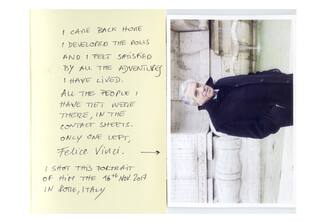 I CAME BACK HOME
I DEVELOPED THE ROLLS
AND I FELT SATISFIED
BY ALL THE ADVENTURES
I HAVE LIVED.
ALL THE PEOPLE I
HAVE MET WERE
THERE, IN THE
CONTACT SHEETS.
ONLY ONE LEFT,
Felice Vinci.
I SHOT THIS PORTRAIT
OF HIM THE 16th NOV. 2017
IN ROME, ITALY